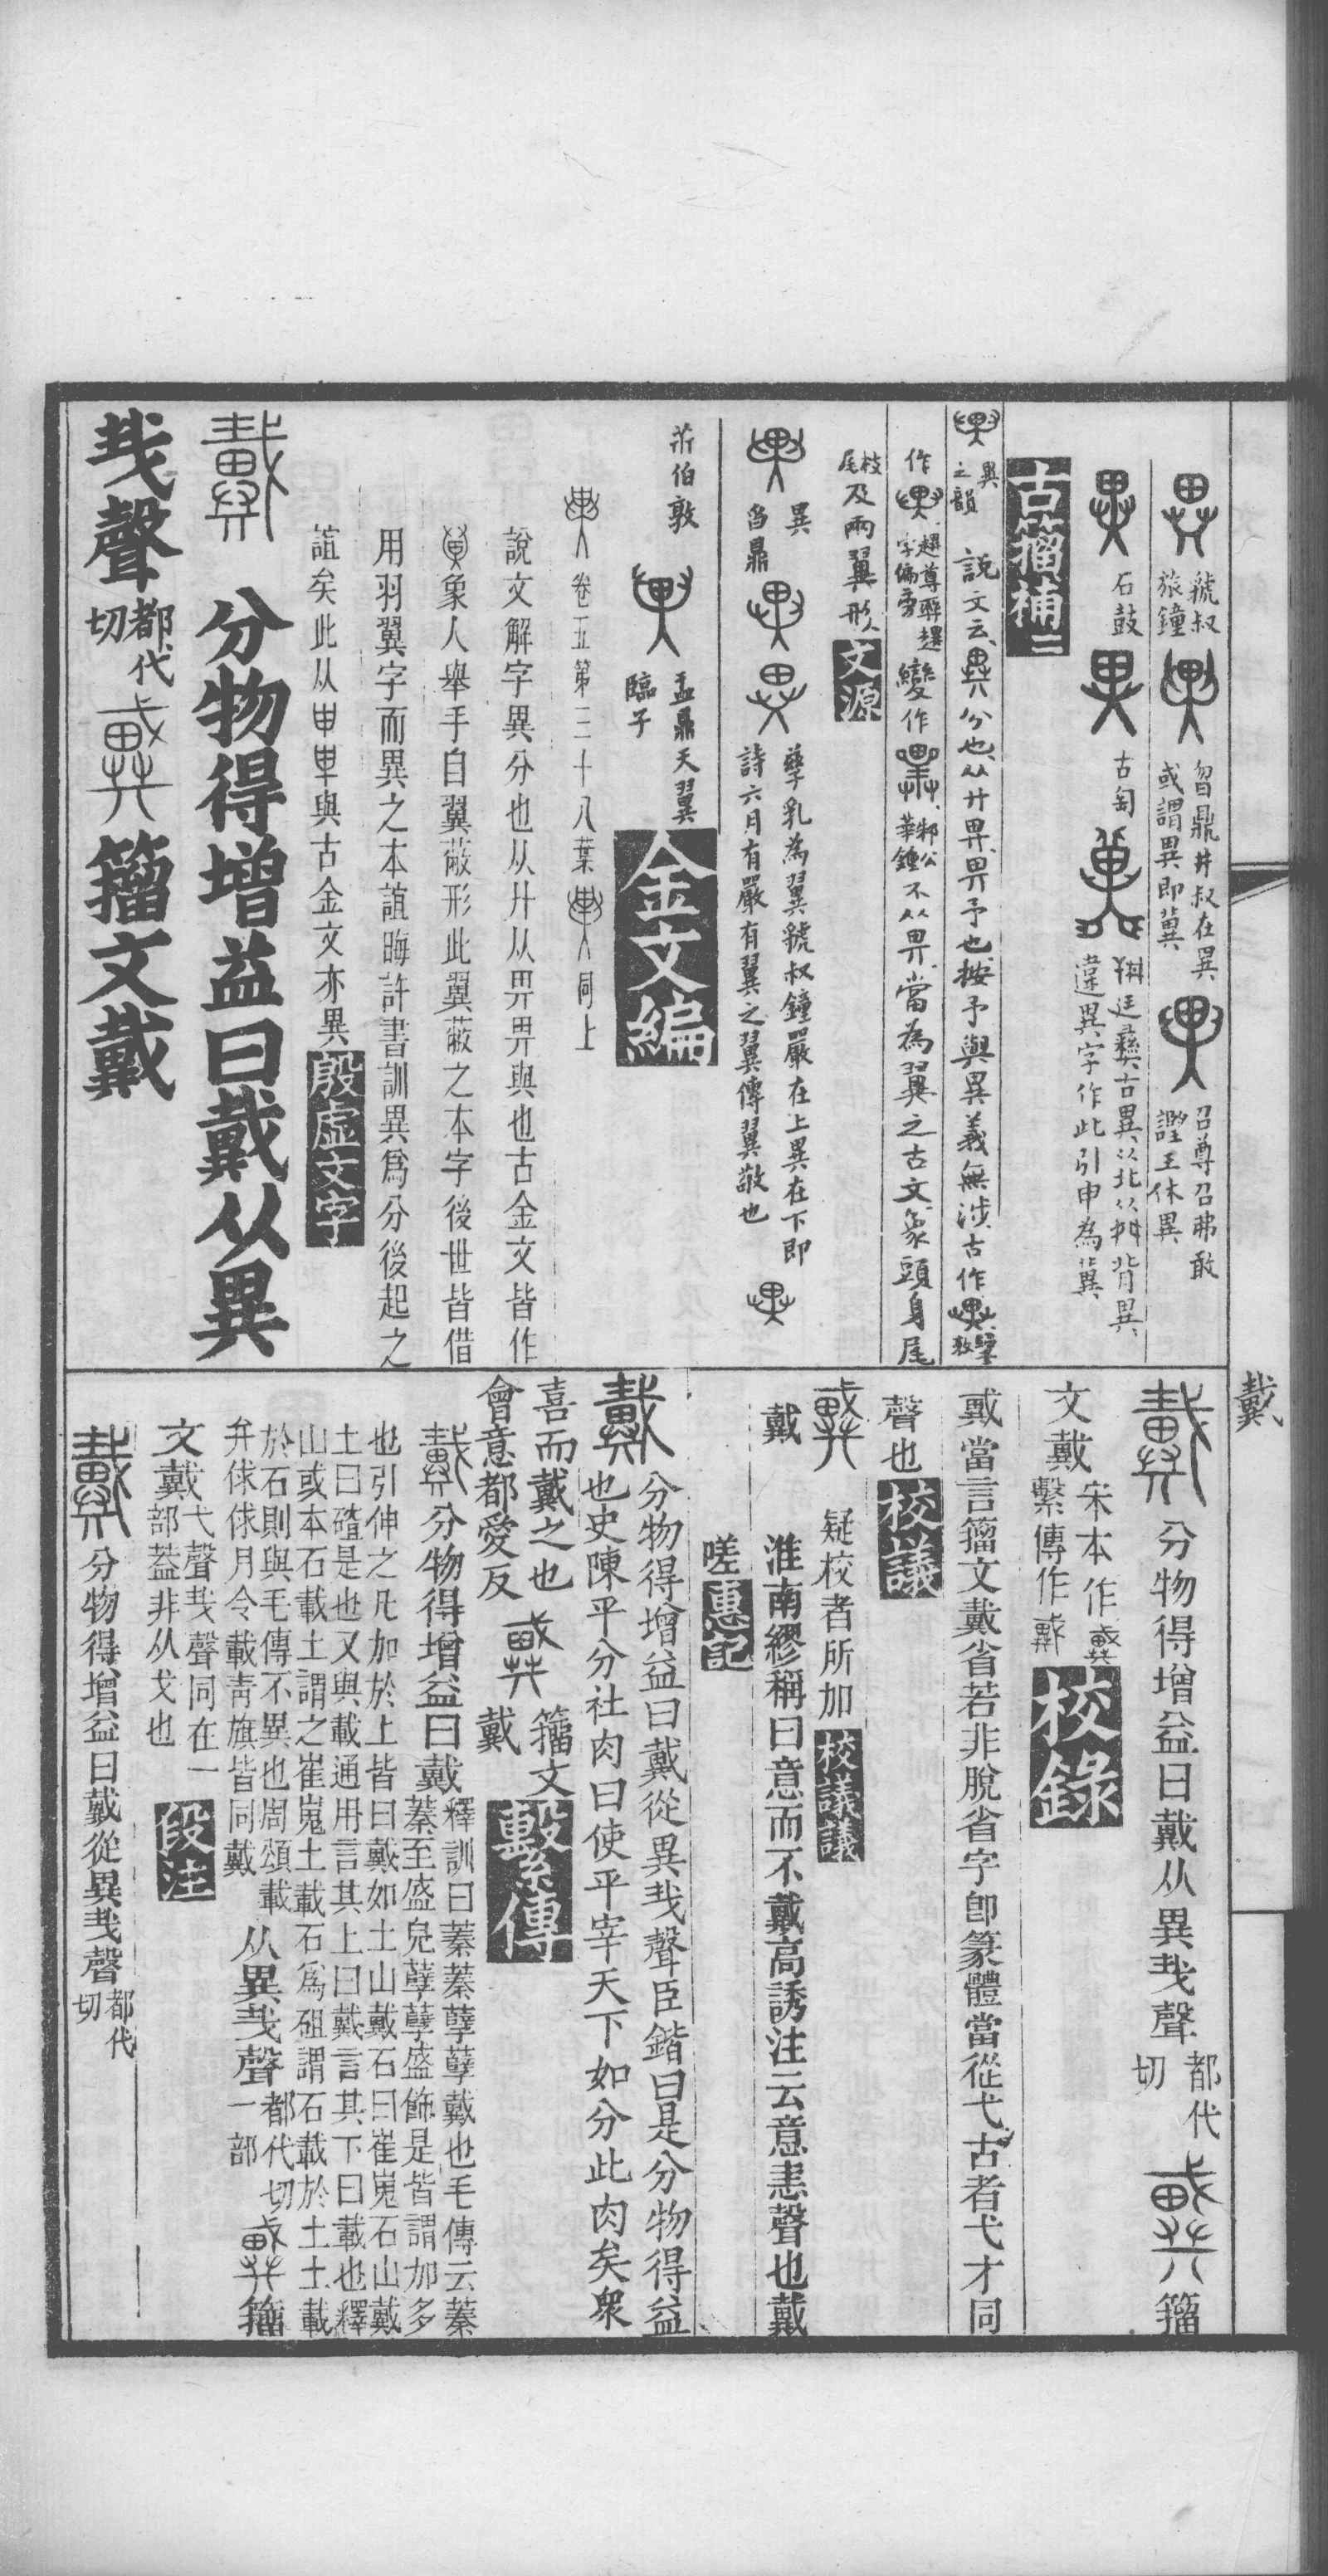 虢叔旅鐘
曶鼎井叔在異或謂異即冀
召尊召弗敢諲王休異
石鼓
古匋
廷彝古異从北从廾背異違異字作此引申為冀
古籀補二
異之韻
說文云分也从廾畀畀予也按予與異義無涉古作
作
變作
邾公華鐘
不从畀當為翼之古文象頭身尾
枝尾及兩翼形
文源
異
曶鼎
孳乳為翼虢叔鐘嚴在上異在下即
詩六月有嚴有翼之翼傳翼敬也
𦬒伯敦
盂鼎天翼臨子
金文編
卷五第二十八葉
同上
說文解字異分也从廾从畀畀與也古金文皆作
象人舉手自翼蔽形此翼蔽之本字後世皆借
用羽翼字而異之本誼晦許書訓異為分後起之
誼矣此从與古金文亦異
殷虛文字
分物得增益曰戴从異
𢦏聲都代切
籀文戴
戴
分物得增益曰戴从異𢦏聲都代切
籀
文戴宋本作
繫傳作
校錄
戴當言籀文戴省若非脫省字卽篆體當從弋古者弋才同
聲也
校議
疑校者所加
校議議
戴
淮南繆稱曰意而不戴高誘注云意恚聲也戴
嗟
惠記
分物得增益曰戴從異𢦏聲臣鍇曰是分物得益
也史陳平分社肉曰使平宰天下如分此肉矣衆
喜而戴之也
會意都愛反
籀文戴
繫傳
分物得增益曰戴
釋訓曰蓁蓁孽孽戴也毛傳云蓁
蓁至盛皃孽孽盛飾是皆謂加多
也引伸之凡加於上皆曰戴如土山戴石曰崔嵬石山戴
土曰碓是也又與載通用言其上曰戴言其下曰載也釋
山或本石載土謂之崔嵬土載石爲砠謂石載於土土載
於石則與毛傳不異也周頌載
弁俅俅月令載靑旗皆同戴
从異𢦏聲都代切一部
籀
文戴弋聲𢦏聲同在一部葢非从戈也
段注
分物得增益曰戴從異𢦏聲都代切